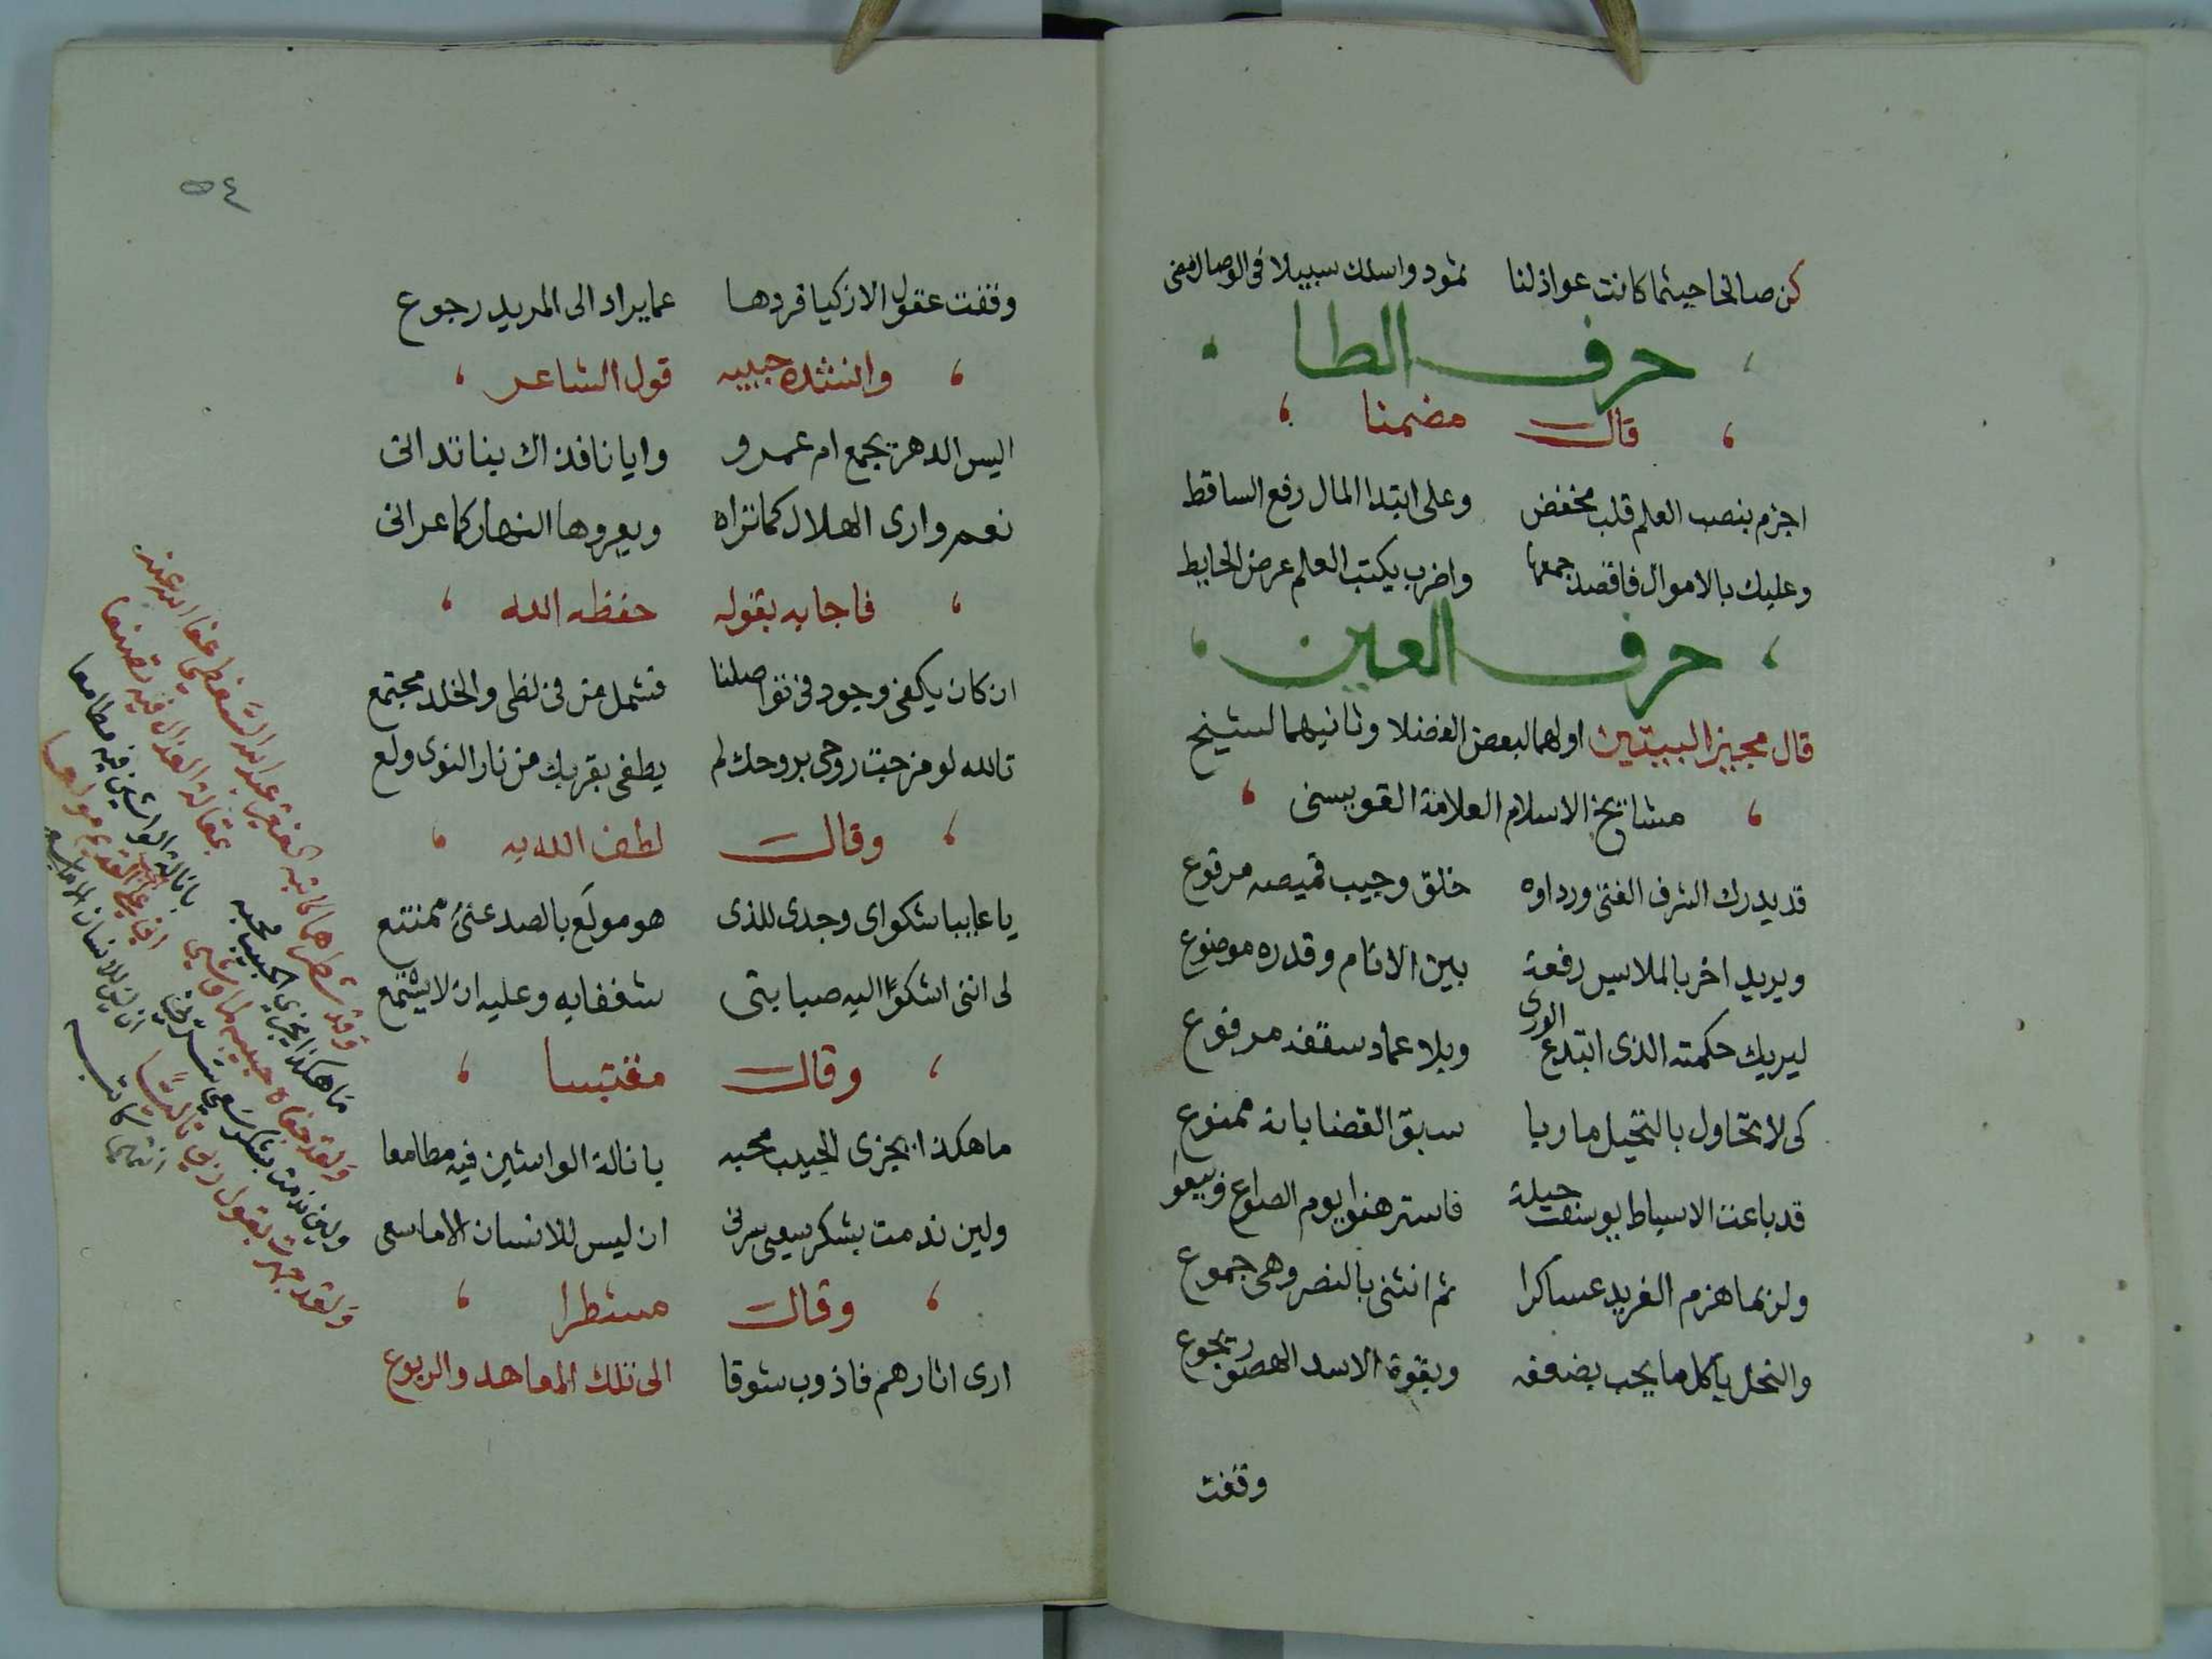 كن صالحا حيثما كانت عواذلنا ثمود واسلك سبيلا في الوصال مضى
حرف الطا
قال مضمنا
اجزم بنصب العلم قلب مخفض وعلى ابتدا المال رفع الساقط
وعليك بالاموال فاقصد جمعها واضرب بكتب العلم عرض الحايط
حرف العين
قال مجيز البيتين اولهما لبعض الفضلا وثانيهما لشيخ
مشايخ الاسلام العلامة القويسنى
قد يدرك الشرف الفتى ورداوه خلق وجيب قميصه مرقوع
ويريد اخر بالملابس رفعة بين الانام وقدره موضوع
ليريك حكمته الذى ابتدع الورى وبلا عماد سقفه مرفوع
كى لا تحاول بالتحيل ما ربا سبق القضا بانه ممنوع
قد باعت الاسباط يوسف حيلة فاسترهنوا يوم الصواع وبيعوا
ولربما هزم الفريد عساكرا ثم انثنى بالنصر وهى جموع
والنحل ياكل ما يحب بضعفه وبقوة الاسد الهصور يجوع
وقفت
٥٤
وقفت عقول الازكيا فردها عما يراد الى المريد رجوع
وانشده حبيبه قول الشاعر
اليس الدهر يجمع ام عمرو وايانا فذاك بنا تدانى
نعم وارى الهلال كما تراه ويعروها النهار كما عرانى
فاجابه بقوله حفظه الله
ان كان يكفى وجود فى تواصلنا فشمل من فى لظى والخلد مجتمع
تالله لو مزجت روحى بروحك لم يطفى بقربك من نار النوى ولع
وقال لطف الله به
يا عايبا شكواى وجدى للذى هو مولع بالصد عنى ممتنع
لى اننى اشكو اليه صبابتى شغفا به وعليه ان لا يستمع
وقال مقتبسا
ما هكذا يجزى الحبيب محبه بانالة الواشين فيه مطامعا
ولين ندمت بشكر سعى سرنى ان ليس للانسان الا ما سعى
وقال مشطرا
ارى اثارهم فاذوب شوقا الى تلك المعاهد والربوع
وقد شطرهما كاتبه الفقير عبد الله السفطى عفا الله عنه
ما هكذا يجزى الحبيب محبه بمقالة العذال فيه تصنعا
ولقد جفاه حبيبه لما وشى بانالة الواشين فيه مطامعا
ولين ندمت بشكر سعى
ولقد جهرت بقول ربى تاليا ان ليس للانسان الا ما سعى